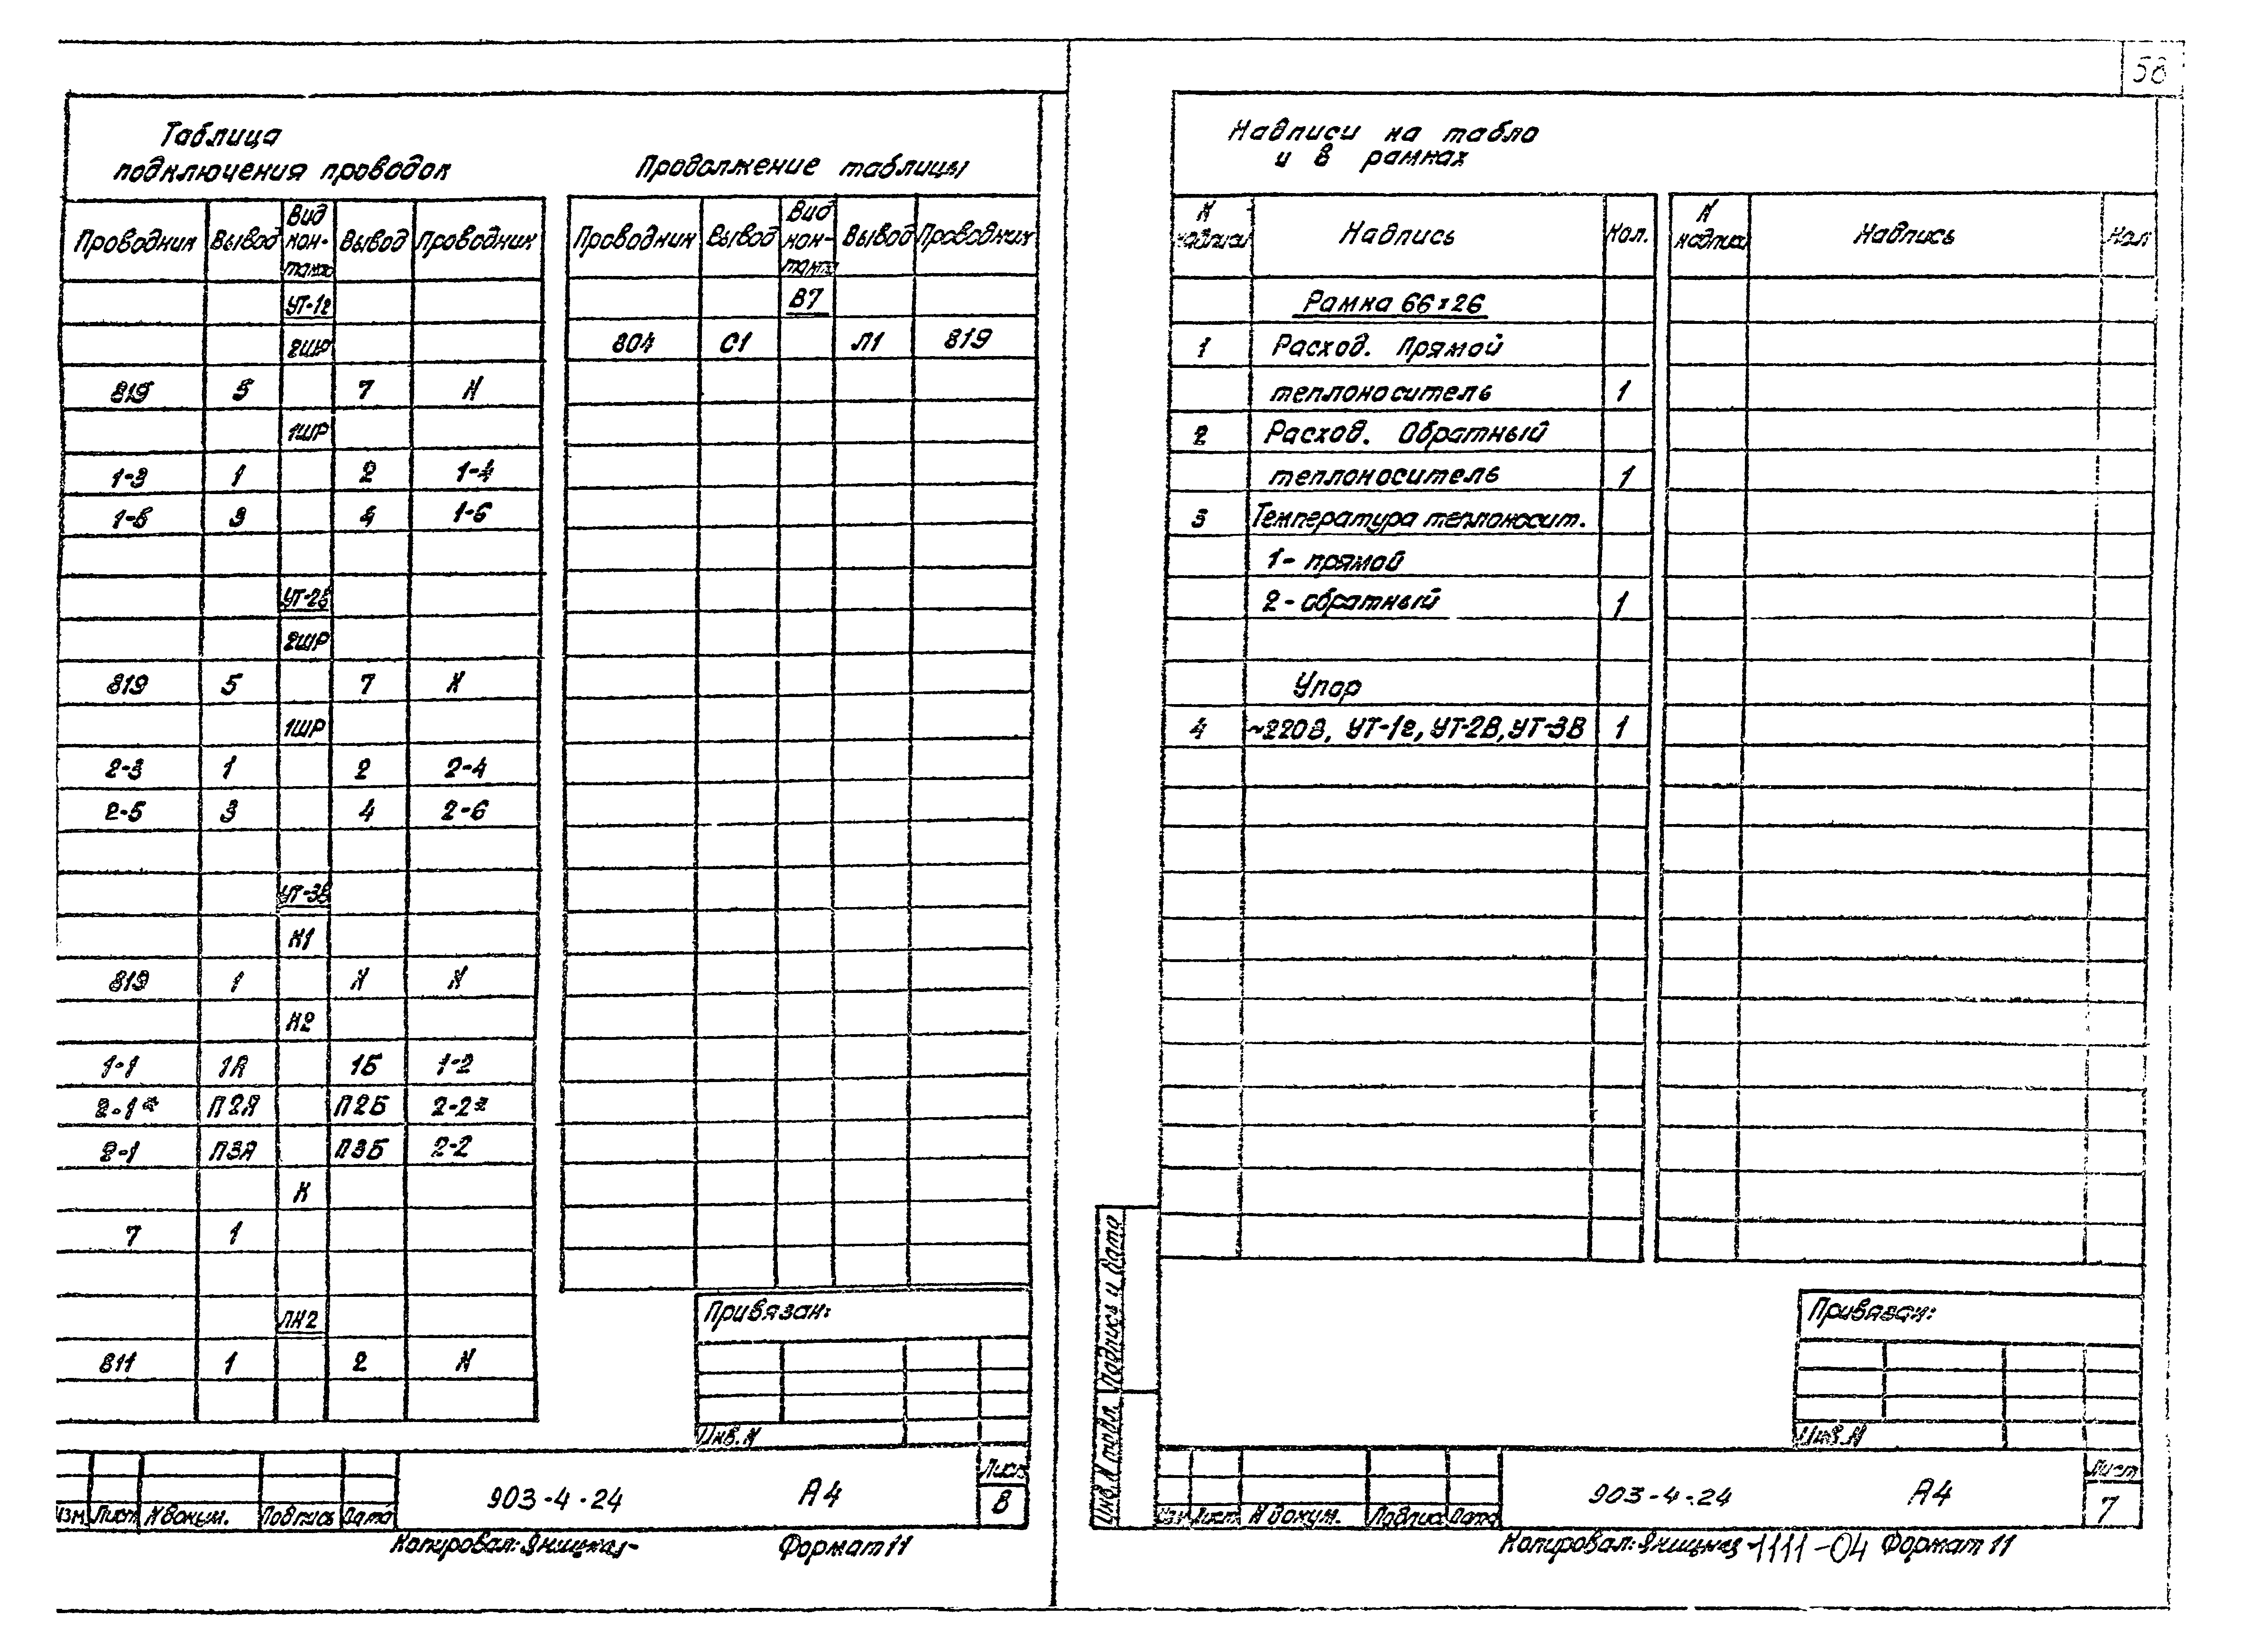 58
Таблица
подключения проводок
Проводник Вывод Вид кон-такта Вывод Проводник
УТ-1г
2ШР
819 5 7 N
1ШР
1-3 1 2 1-4
1-5 3 4 1-6
УТ-2в
2ШР
819 5 7 N
1ШР
2-3 1 2 2-4
2-5 3 4 2-6
УТ-3в
К1
819 1 N N
К2
1-1 1А 1Б 1-2
2-1* П2А П2Б 2-2*
2-1 П3А П3Б 2-2
К
7 1
ЛК2
811 1 2 N
Продолжение таблицы
Проводник Вывод Вид кон-такта Вывод Проводник
В7
804 С1 Л1 819
Привязан:
Инв. N
Изм. Лист N докум. Подпись Дата
903-4-24 А4
Лист
8
Копировал: Яницкая Формат 11
Надписи на табло
и в рамках
N надписи Надпись Кол. N надписи Надпись Кол.
Рамка 66x26
1 Расход. Прямой
теплоноситель 1
2 Расход. Обратный
теплоноситель 1
3 Температура теплоносит.
1- прямой
2- обратный 1
Упор
4 ~220В, УТ-1г, УТ-2В, УТ-3В 1
Привязан:
Инв. N
Инв. N подл. Подпись и дата
Изм Лист N докум. Подпись Дата
903-4-24 А4
Лист
7
Копировал: Яницкая 1111-04 Формат 11